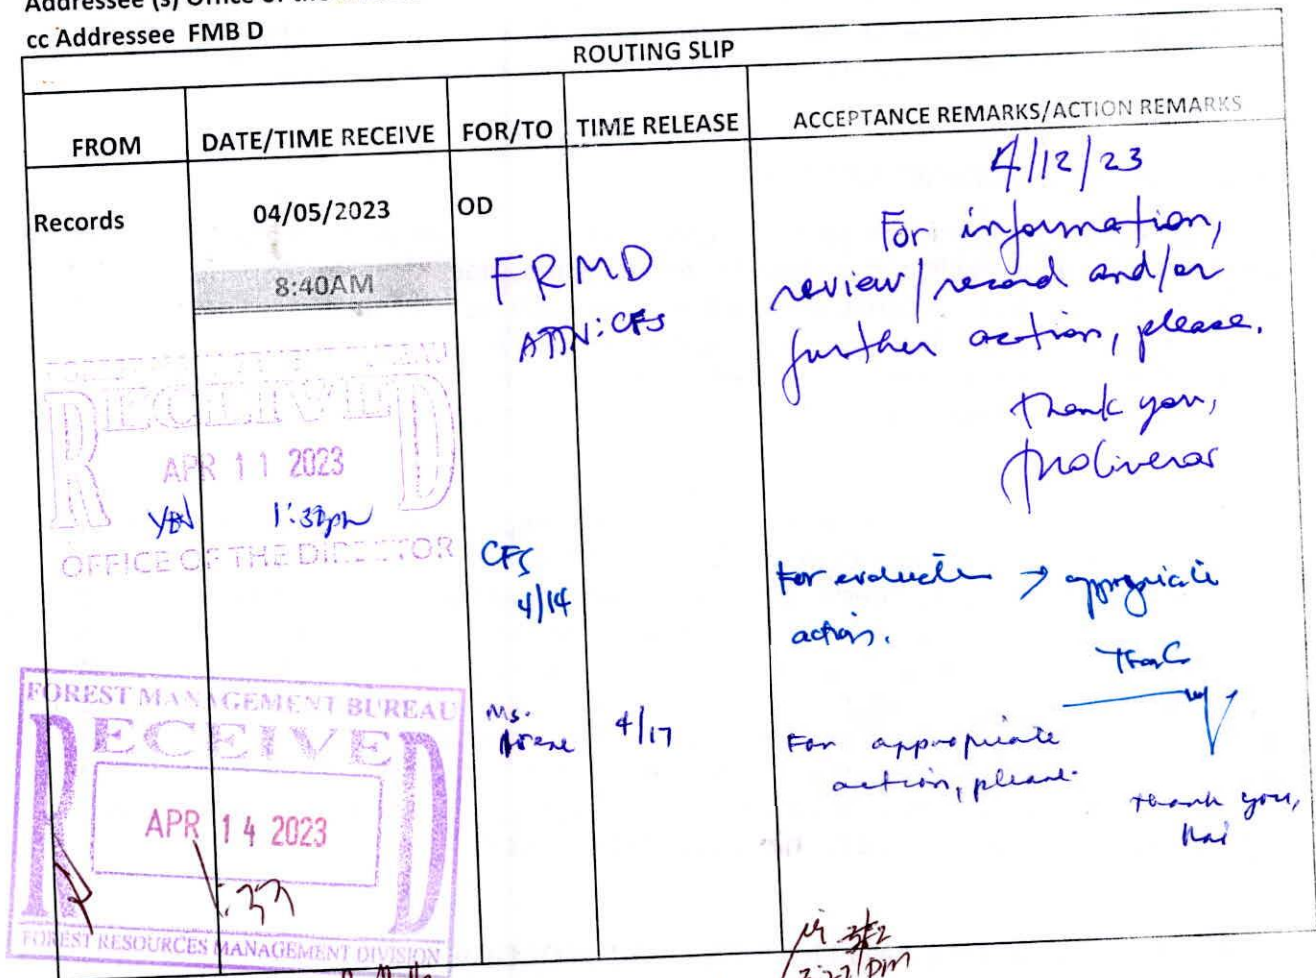 cc Addressee FMB D
ROUTING SLIP
FROM
DATE/TIME RECEIVE
FOR/TO
TIME RELEASE
ACCEPTANCE REMARKS/ACTION REMARKS
Records
04/05/2023
OD
8:40AM
FRMD
ATTN: CFS
4/12/23
For information,
review/record and/or
further action, please.
Thank you,
RECEIVED
APR 11 2023
OFFICE OF THE DIRECTOR
CFS
4/14
For
appropriate
action.
FOREST MANAGEMENT BUREAU
RECEIVED
APR 14 2023
FOREST RESOURCES MANAGEMENT DIVISION
Ms.
4/17
For appropriate
action, please.
Thank you,